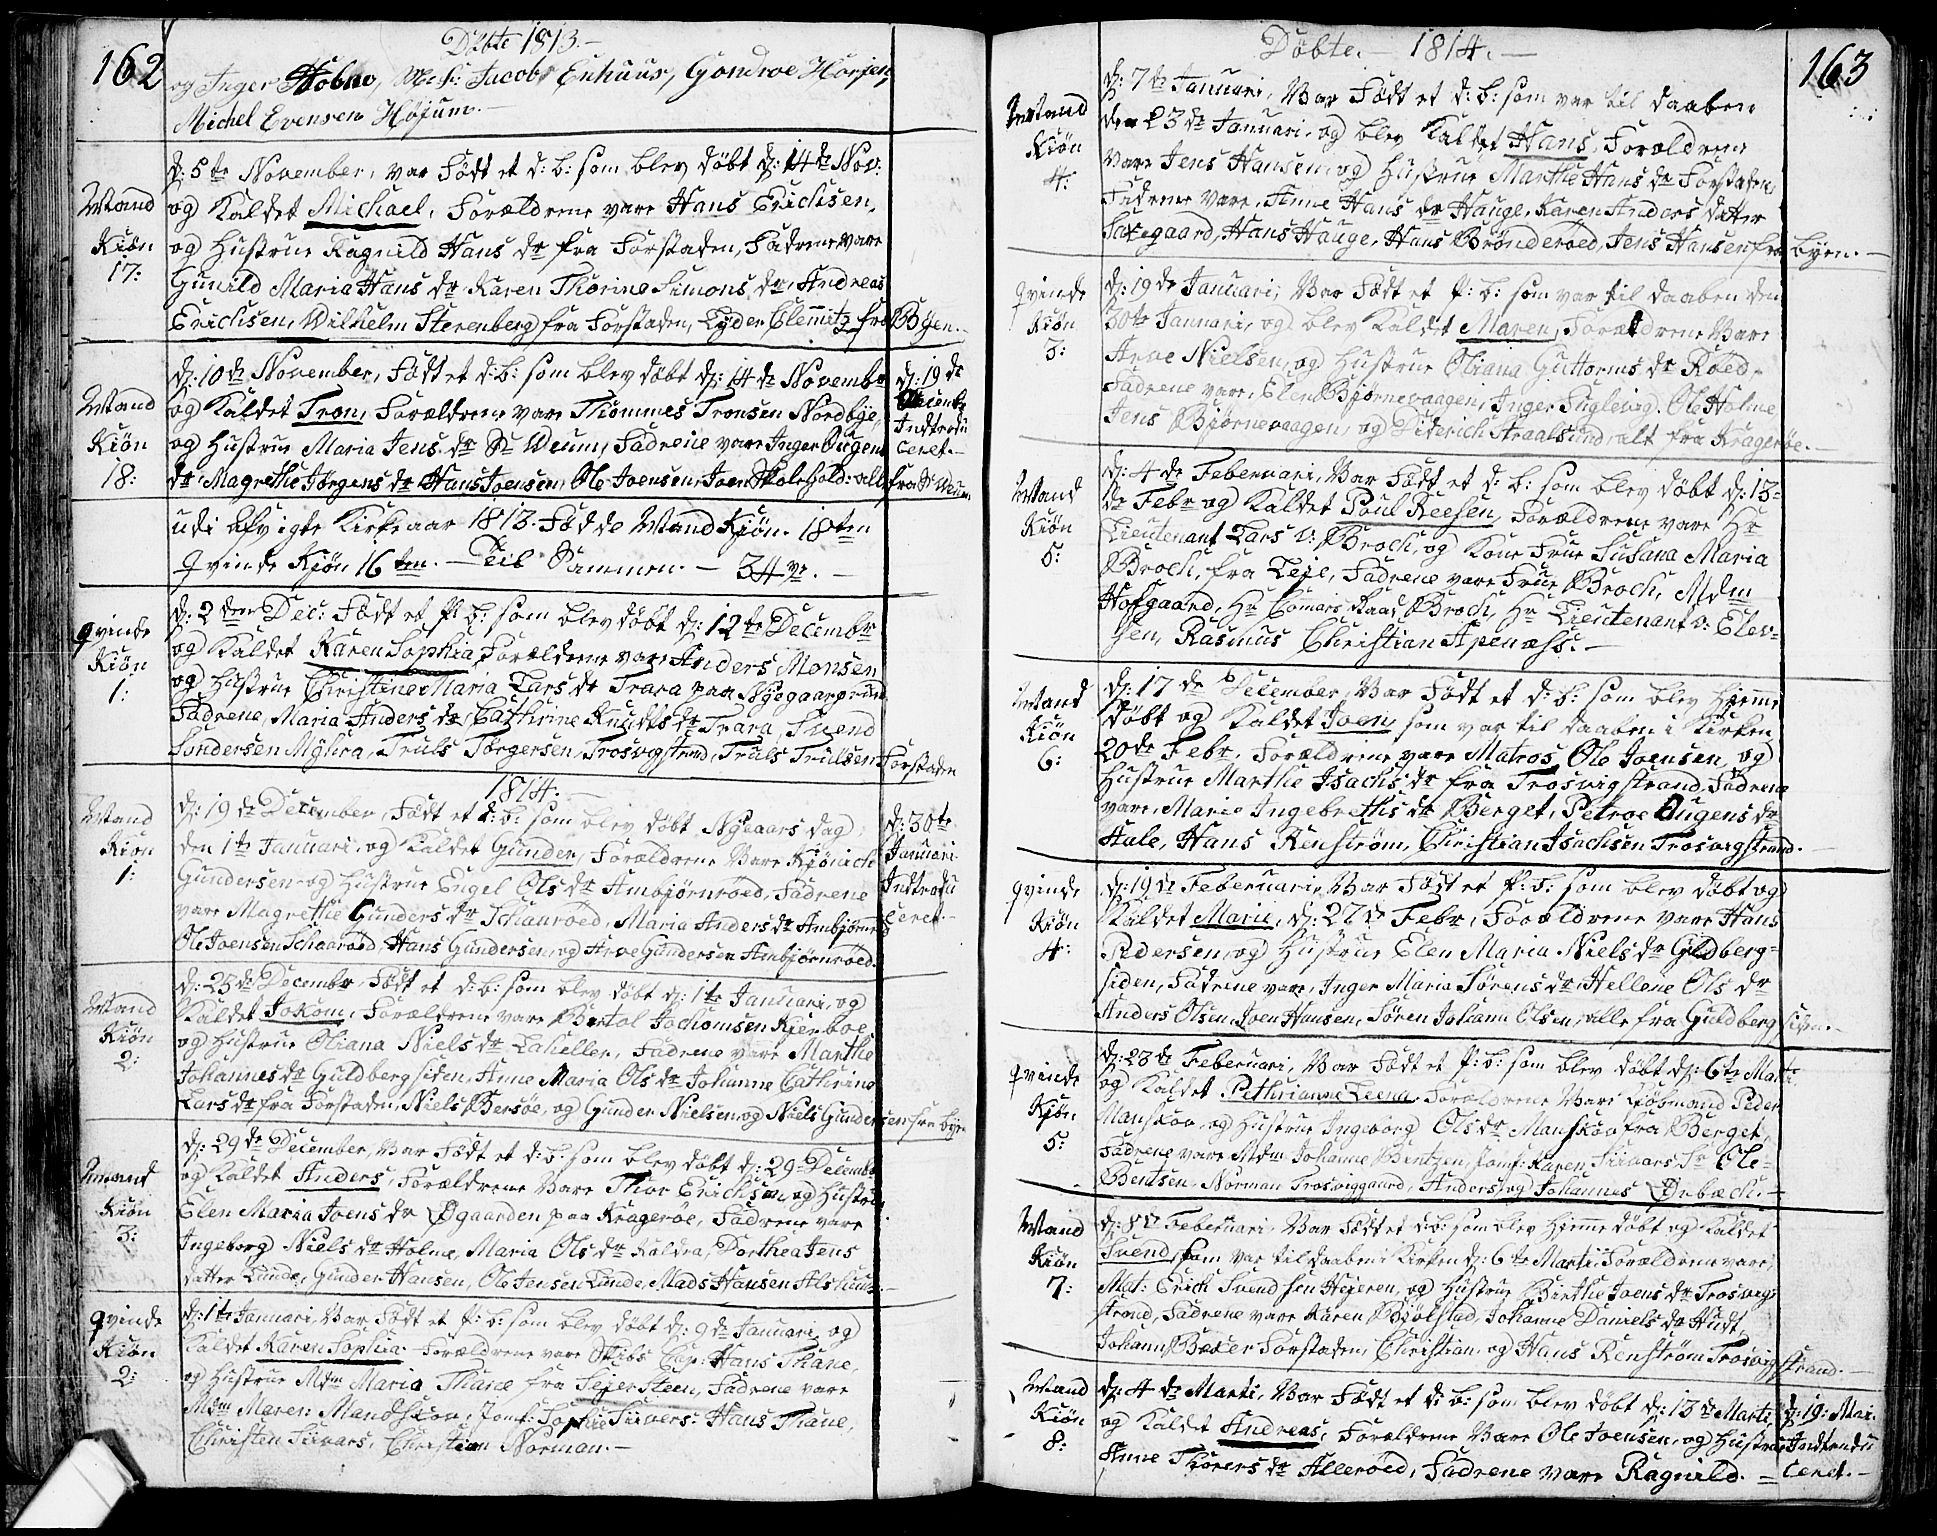 162
Døbte 1813.-
og Inger Høbne, Jacob Enhuus, Gondroe Horjen
Michel Evensen HøJum.-
Mand Kiøn 17:
d: 5te November, var Født et d: b: som blev døbt d: 14de Nov:
og Kaldet Michael, Forældrene vare Hans Erichsen,
og Hustrue Ragnild Hans dr fra Forstaden, Fadrene vare
Gunild Maria Hans dr Karen Thorine Simons dr, Andreas
Erichsen, Wilhelm Sterenberg fra Forstaden, Lyder Clemmitz fra Byen.-
Mand Kiøn 18:
d: 10de November, Født et d: b: som blev døbt d: 14de Novembr
og Kaldet Tron, Forældrene vare Thommes Tronsen Nordbye,
og Hustrue Maria Jens dr Weum, Fadrene vare Inger Ougens
dr Magrethe Jørgens dr Hans Joensen, Ole Joensen, Joen
d: 19de
Decembr
Indtrodu
ceret.-
udi Kirkeaar 1813. Fødde Mand Kiøn. 18ten
Qvinde Kiøn 16ten. - Til Sammen. - 34ve. -
qvinde Kiøn 1:
d: 2den Dec: Født et P: b: som blev døbt d: 12te Decembr
og Kaldet Karen Sophia, Forældrene vare Anders Monsen
og Hustrue Christine Maria Lars dr Trara paa
Fadrene, Maria Anders dr, Cathrine Knudts dr Trara, Svend
Sondersen Truls Torgersen, Trosvigstrand, Truls Trulsen Forstaden
1814.-
Mand Kiøn 1:
d: 19de December, Født et d: b: som blev døbt Nyeaars dag,
den 1te Januari, og Kaldet Gunder, Forældrene Vare
Gundersen og Hustrue Engel Ols dr Ambjørnrøed, Fadrene
vare Magrethe Gunders dr Schaurøed, Maria Anders dr
Ole Joensen Schaarøed, Hans Gundersen, og Arve Gundersen Ambjørnrøed.
d: 30te
Januari
Indtrodu
ceret.-
Mand Kiøn 2:
d: 23de Decembr, Født et d: b: som blev døbt d: 1te Januari, og
Kaldet Jokom, Forældrene vare Bertol Jochomsen Kjerboe
og Hustrue Oliana Niels dr Laheller, Fadrene vare Marthe
Johannes dr Guldbergsiden, Anne Maria Ols dr Johanne Cathrine
Lars dr fra Forstaden, Niels Bersøe, og Gunder Nielsen, og Niels Gundersen fra byen
Mand Kiøn 3:
d: 29de December, Var Født et d: b: som blev døbt d: 29 Decembr
og Kaldet Anders, Forældrene Vare Thor Erichsen, og Hustrue
Elen Maria Joens dr Øgaarden paa Kragerøe, Fadrene vare
Ingeborg Niels dr Holme, Maria Ols dr Kaldra, Dorthea Jens
datter Lunde, Gunder Hansen, Ole Jensen Lunde, Mads Hansen
qvinde Kiøn 2:
d: 1te Januari, Var Født et P: b: som blev døbt d: 9de Januari, og
Kaldet Karen Sophia Forældrene vare Skibs Cap: Hans Thane,
og Hustrue Mdm Maria Thane fra Sejersteen, Fadrene vare
Mdm Maren Mandskou, Jomf: Sophie Siivers: Hans Thane,
Christen Siivars, Christian Norman.-
163
Døbte.- 1814.-
Mand Kiøn 4:
d: 7de Januari, Var Født et d: b: som var til daaben
den 23de Januari, og blev Kaldet Hans, Forældrene
vare Jens Hansen, og Hustrue Marthe Hans dr Forstaden,
Fadrene vare, Anne Hans dr Hauge, Karen Anders datter
Saxegaard, Hans Hauge, Hans Brønderøed, Jens Hansen fra byen.-
qvinde Kiøn 3:
d: 19de Januari, Var Født et P: b: som var til daaben den
30te Januari, og blev Kaldet Maren, Forældrene Vare
Arve Nielsen, og Hustrue Oliana Guttorms dr Røed,
Fadrene vare, Elen Bjørnevaagen, Inger Fuglevig, Ole Holme,
Jens Bjørnevaagen, og Diderich Straalsund, alt fra Kragerøe.-
Mand Kiøn 5:
d: 4de Februari, Var Født et d: b: som blev døbt d: 13-
de Febr og Kaldet Poul Reesen, Forældrene vare Hr
Lieutenant Lars v: Broch, og Kone Frue Susana Maria
Broch, fra Leje, Fadrene vare Frue Broch, Mdm
Hofgaard, Hr Raad Broch, Hr Lieutenant v: Elev-
sen, Rasmus Christian Apenæss.-
Mand Kiøn 6:
d: 17de December, Var Født et d: b: som blev Hjemme
døbt og Kaldet Joen, som var til daaben i Kirken
20de Febr. Forældrene vare Matros Ole Joensen, og
Hustrue Marthe Isachs dr fra Trosvigstrand, Fadrene
vare, Marie Ingebreths dr Berget, Petroe Ougens dr
Hale, Hans Renstrøm, Christian Isachsen Trosvigstrand.-
qvinde Kiøn 4:
d: 19de Februari, Var Født et P: b: som blev døbt og
Kaldet Marie, d: 27de Febr, Forældrene vare Hans
Pedersen, og Hustrue Elen Maria Niels dr Guldberg-
siden, Fadrene vare, Inger Maria Sørens dr, Hellene Ols dr
Anders Olsen, Joen Hansen, Søren Johann Olsen, alle fra Guldbergsiden.-
qvinde Kiøn 5:
d: 23de Februari, Var Født et P: b: som blev døbt d: 6te Marti
og Kaldet Pethrianne Leena, Forældrene Vare Kiøbmand Peder
Manskou, og Hustrue Ingeborg Ols dr Manskou fra Berget,
Fadrene vare Mdm Johanne Bentzen, Jomf: Karen Siivars Sr Ole
Bentsen, Norman Trosviggaard, Anders og Johannes Ørbæch.-
Mand Kiøn 7:
d: 8de Februari, Var Født et d: b: som blev Hjemme døbt og Kaldet
Svend, som var til daaben i Kirken d: 6te Marti: Forældrene vare,
Mat: Erich Svendsen Hejeren, og Hustrue Birthe Joens dr Trosvig-
strand, Fadrene vare Karen Bjølstad, Johanne Daniels dr Hudt,
Johann Beder Forstaden, Christian, og Hans Renstrøm Trosvigstrand.-
Mand Kiøn 8:
d: 4de Marti, Var Født et d: b: som blev døbt d: 13de Marti,
og Kaldet Andreas, Forældrene Vare Ole Joensen, og Hustrue
Anne Thorers dr Allerøed, Fadrene vare Ragnild. -
d: 19: Mai.
Indtrodu
ceret.-